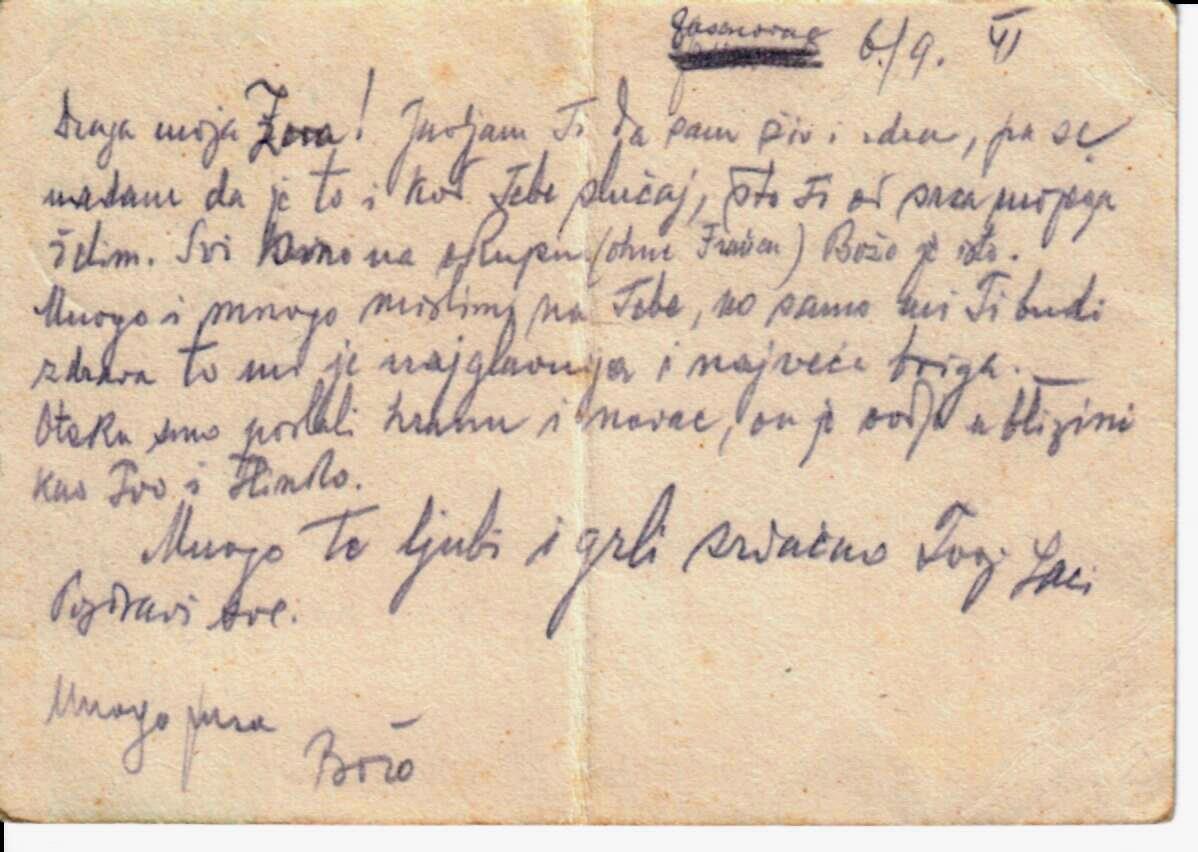 Jasenovac 6./9. VI
Draga moja Zora! Javljam Ti da sam živ i zdrav, pa se
nadam da je to i kod Tebe slučaj, što Ti od srca mojega
želim. Svi na okupu (ohne Frauen) Božo je isto.
Mnogo i mnogo mislimo na Tebe, no samo mi Ti budi
zdrava to mi je najglavnija i najveća briga.
Otsku smo poslali hranu i novac, on je ovdje u blizini
kao Ivo i Hinko.
Mnogo te ljubi i grli srdačno Tvoj Laci
Pozdravi sve.
Mnogo pusa
Božo